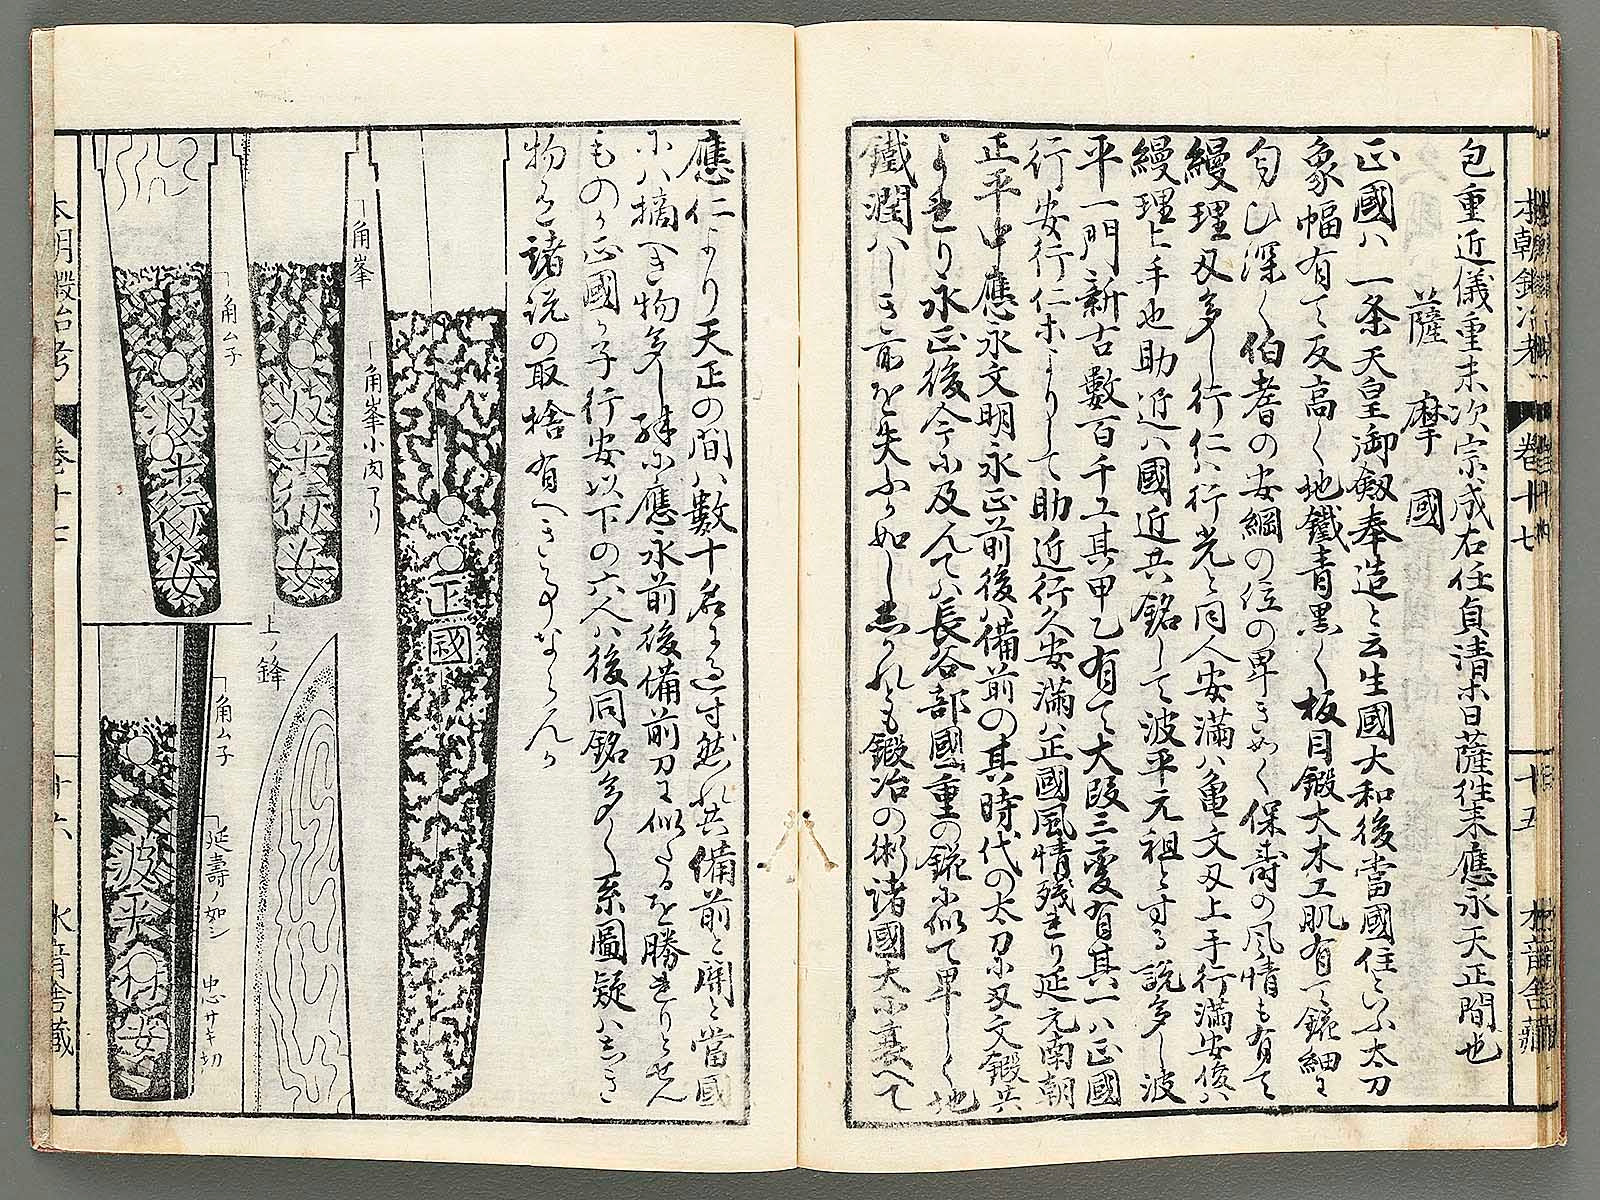 本朝鍛冶考 巻十七 十五 水音舎蔵
包重近儀重末次宗成右任貞清ホ曰薩往来應永天正間也
薩摩國
正國ハ一条天皇御剱奉造と云生國大和後當國住といふ太刀
象幅有て反高く地鐵青黒く板目鍛大木工肌有て錵細に
匂ひ深く伯耆の安綱の位の卑き如く保壽の風情も有て
縵理刃多し行仁ハ行光と同人安滿ハ亀文刃上手行滿安俊ハ
縵理上手也助近ハ國近共銘して波平元祖とする説多し波
平一門新古數百千工其甲乙有て大段三変有其一ハ正國
行安行仁ホよりして助近行久安滿ハ正國風情残れり延元南朝
正平中應永文明永正前後ハ備前の其時代の太刀ホ刃文鍛共
よれり永正後今ホ及んてハ長谷部國重の錵ホ似て卑しく地
鐵潤ハしき前を失ふか如し然れとも鍛冶の術諸國大小
應仁より天正の間ハ數十名 然れ共備前と當國
ホハ摘へき物多し 應永前後備前刀に似たるを勝れりとせん
ものか正國か子行安以下の六人ハ後同銘多く系圖疑ハしき
物を諸説の取捨有へき事ならんか
正國
角峯
角峯小肉アリ
波平行安
角ムネ
波平行安
上ノ鋒
角ムネ
延壽ノ如シ
忠サキ切
波平行安
本朝鍛冶考 巻十七 十六 水音舎蔵